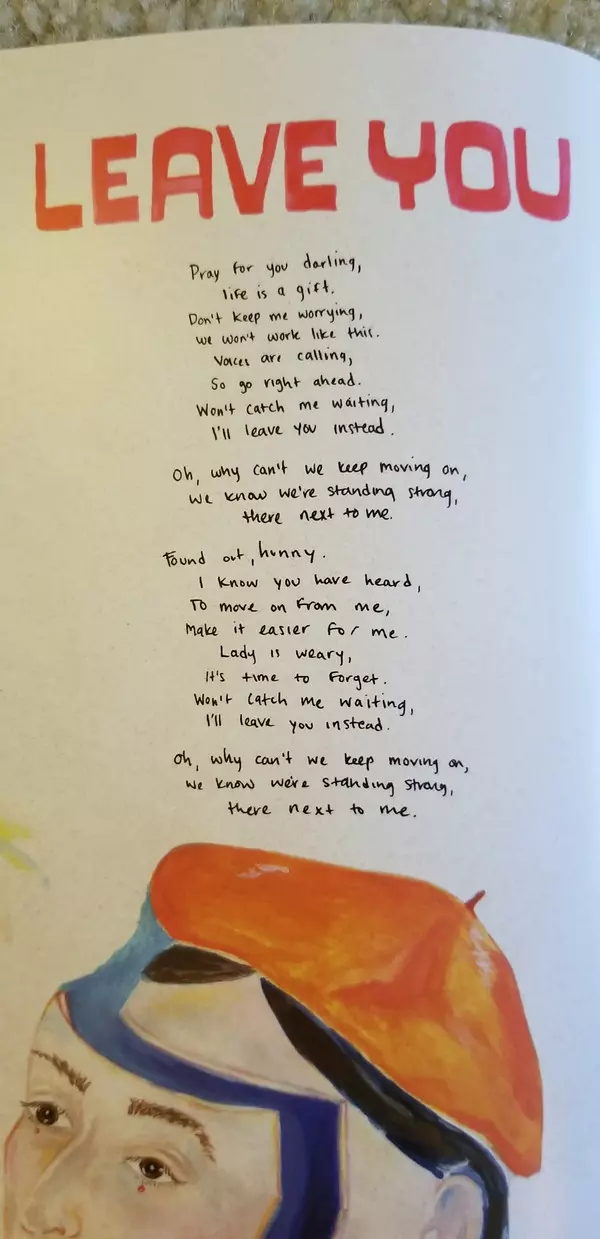 LEAVE YOU
Pray for you darling,
life is a gift.
Don't keep me worrying,
we won't work like this.
Voices are calling,
So go right ahead.
Won't catch me waiting,
I'll leave you instead.
Oh, why can't we keep moving on,
we know we're standing strong,
there next to me.
Found out, hunny.
I know you have heard,
To move on from me,
Make it easier for me.
Lady is weary,
It's time to forget.
Won't catch me waiting,
I'll leave you instead.
Oh, why can't we keep moving on,
we know we're standing strong,
there next to me.